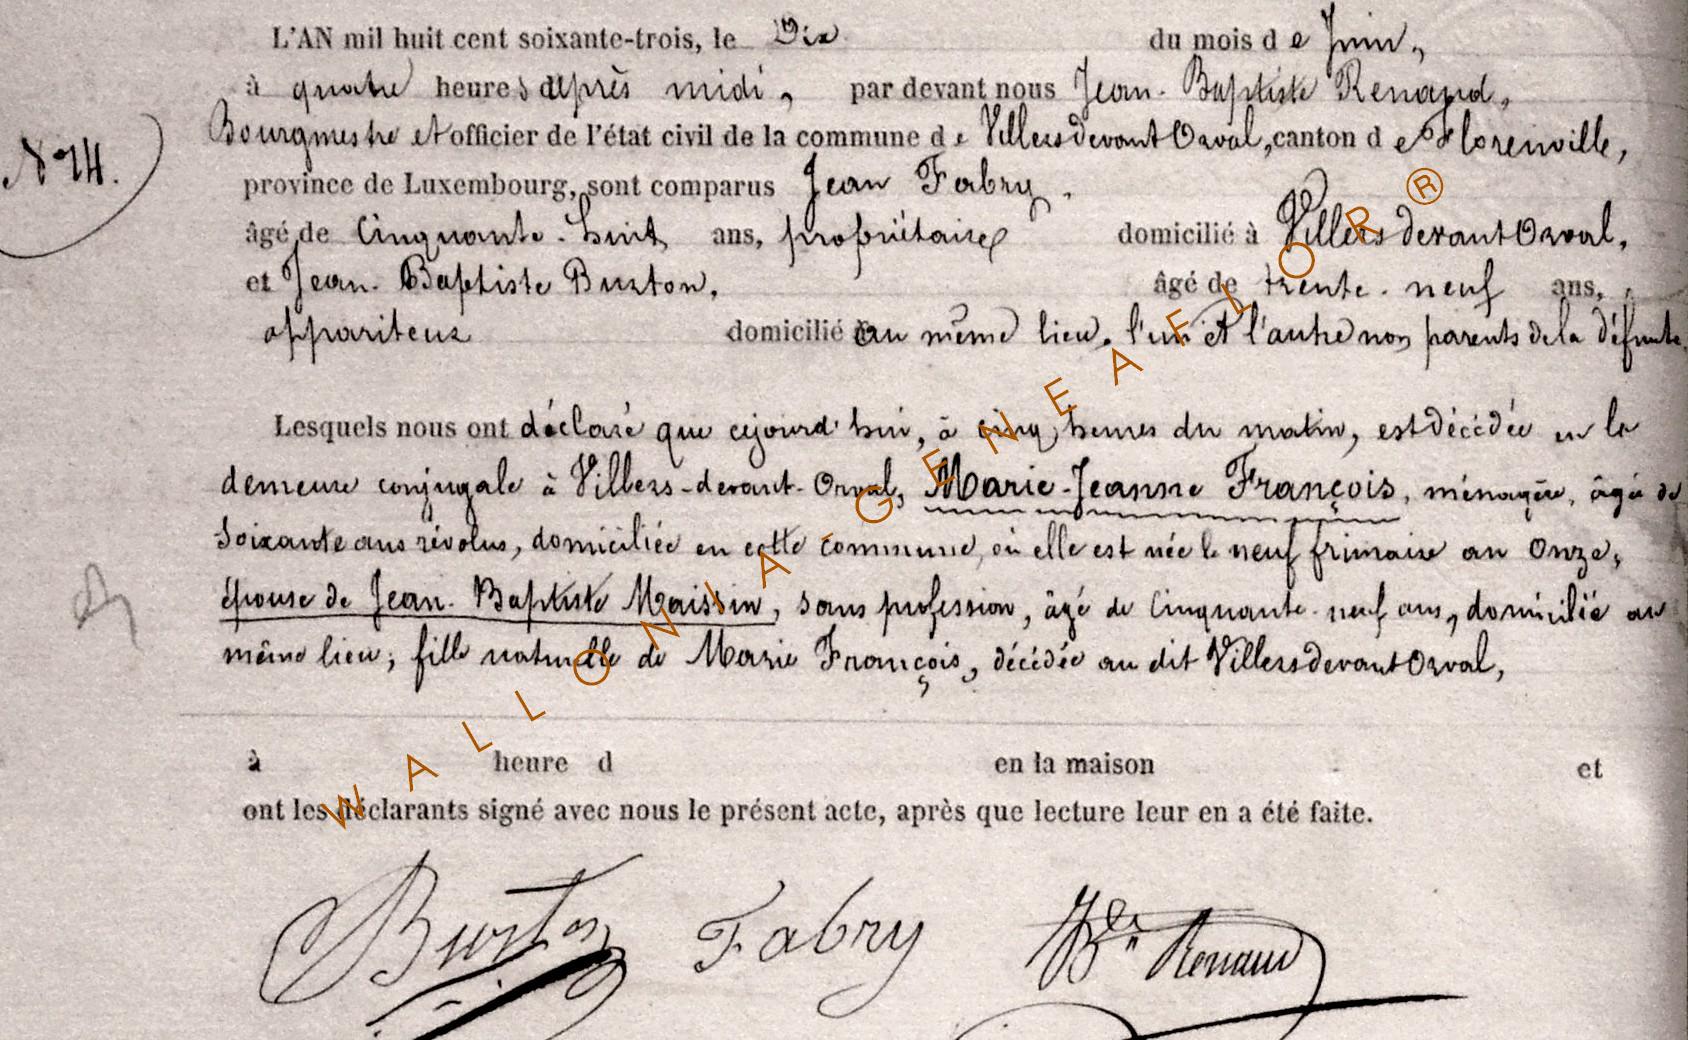 L'AN mil huit cent soixante-trois, le Dix du mois de Juin,
à quatre heures après midi, par devant nous Jean-Baptiste Renaud,
Bourgmestre et officier de l'état civil de la commune de Villers devant Orval, canton de Florenville,
N° 14.
province de Luxembourg, sont comparus Jean Fabry,
âgé de Cinquante-huit ans, propriétaire domicilié à Villers devant Orval,
et Jean-Baptiste Burton, âgé de trente-neuf ans,
appariteur domicilié au même lieu, l'un et l'autre non parents de la défunte.
Lesquels nous ont déclaré que cejourd'hui, à cinq heures du matin, est décédée en la
demeure conjugale à Villers-devant-Orval, Marie-Jeanne François, ménagère, âgée de
soixante ans révolus, domiciliée en cette commune, où elle est née le neuf frimaire an onze,
épouse de Jean-Baptiste Maissin, sans profession, âgé de Cinquante-neuf ans, domicilié au
même lieu; fille naturelle de Marie François, décédée au dit Villers devant Orval,
à heure d en la maison et
ont les déclarants signé avec nous le présent acte, après que lecture leur en a été faite.
Burton Fabry JBte Renaud
WALLONIA-GENEAFLOR®